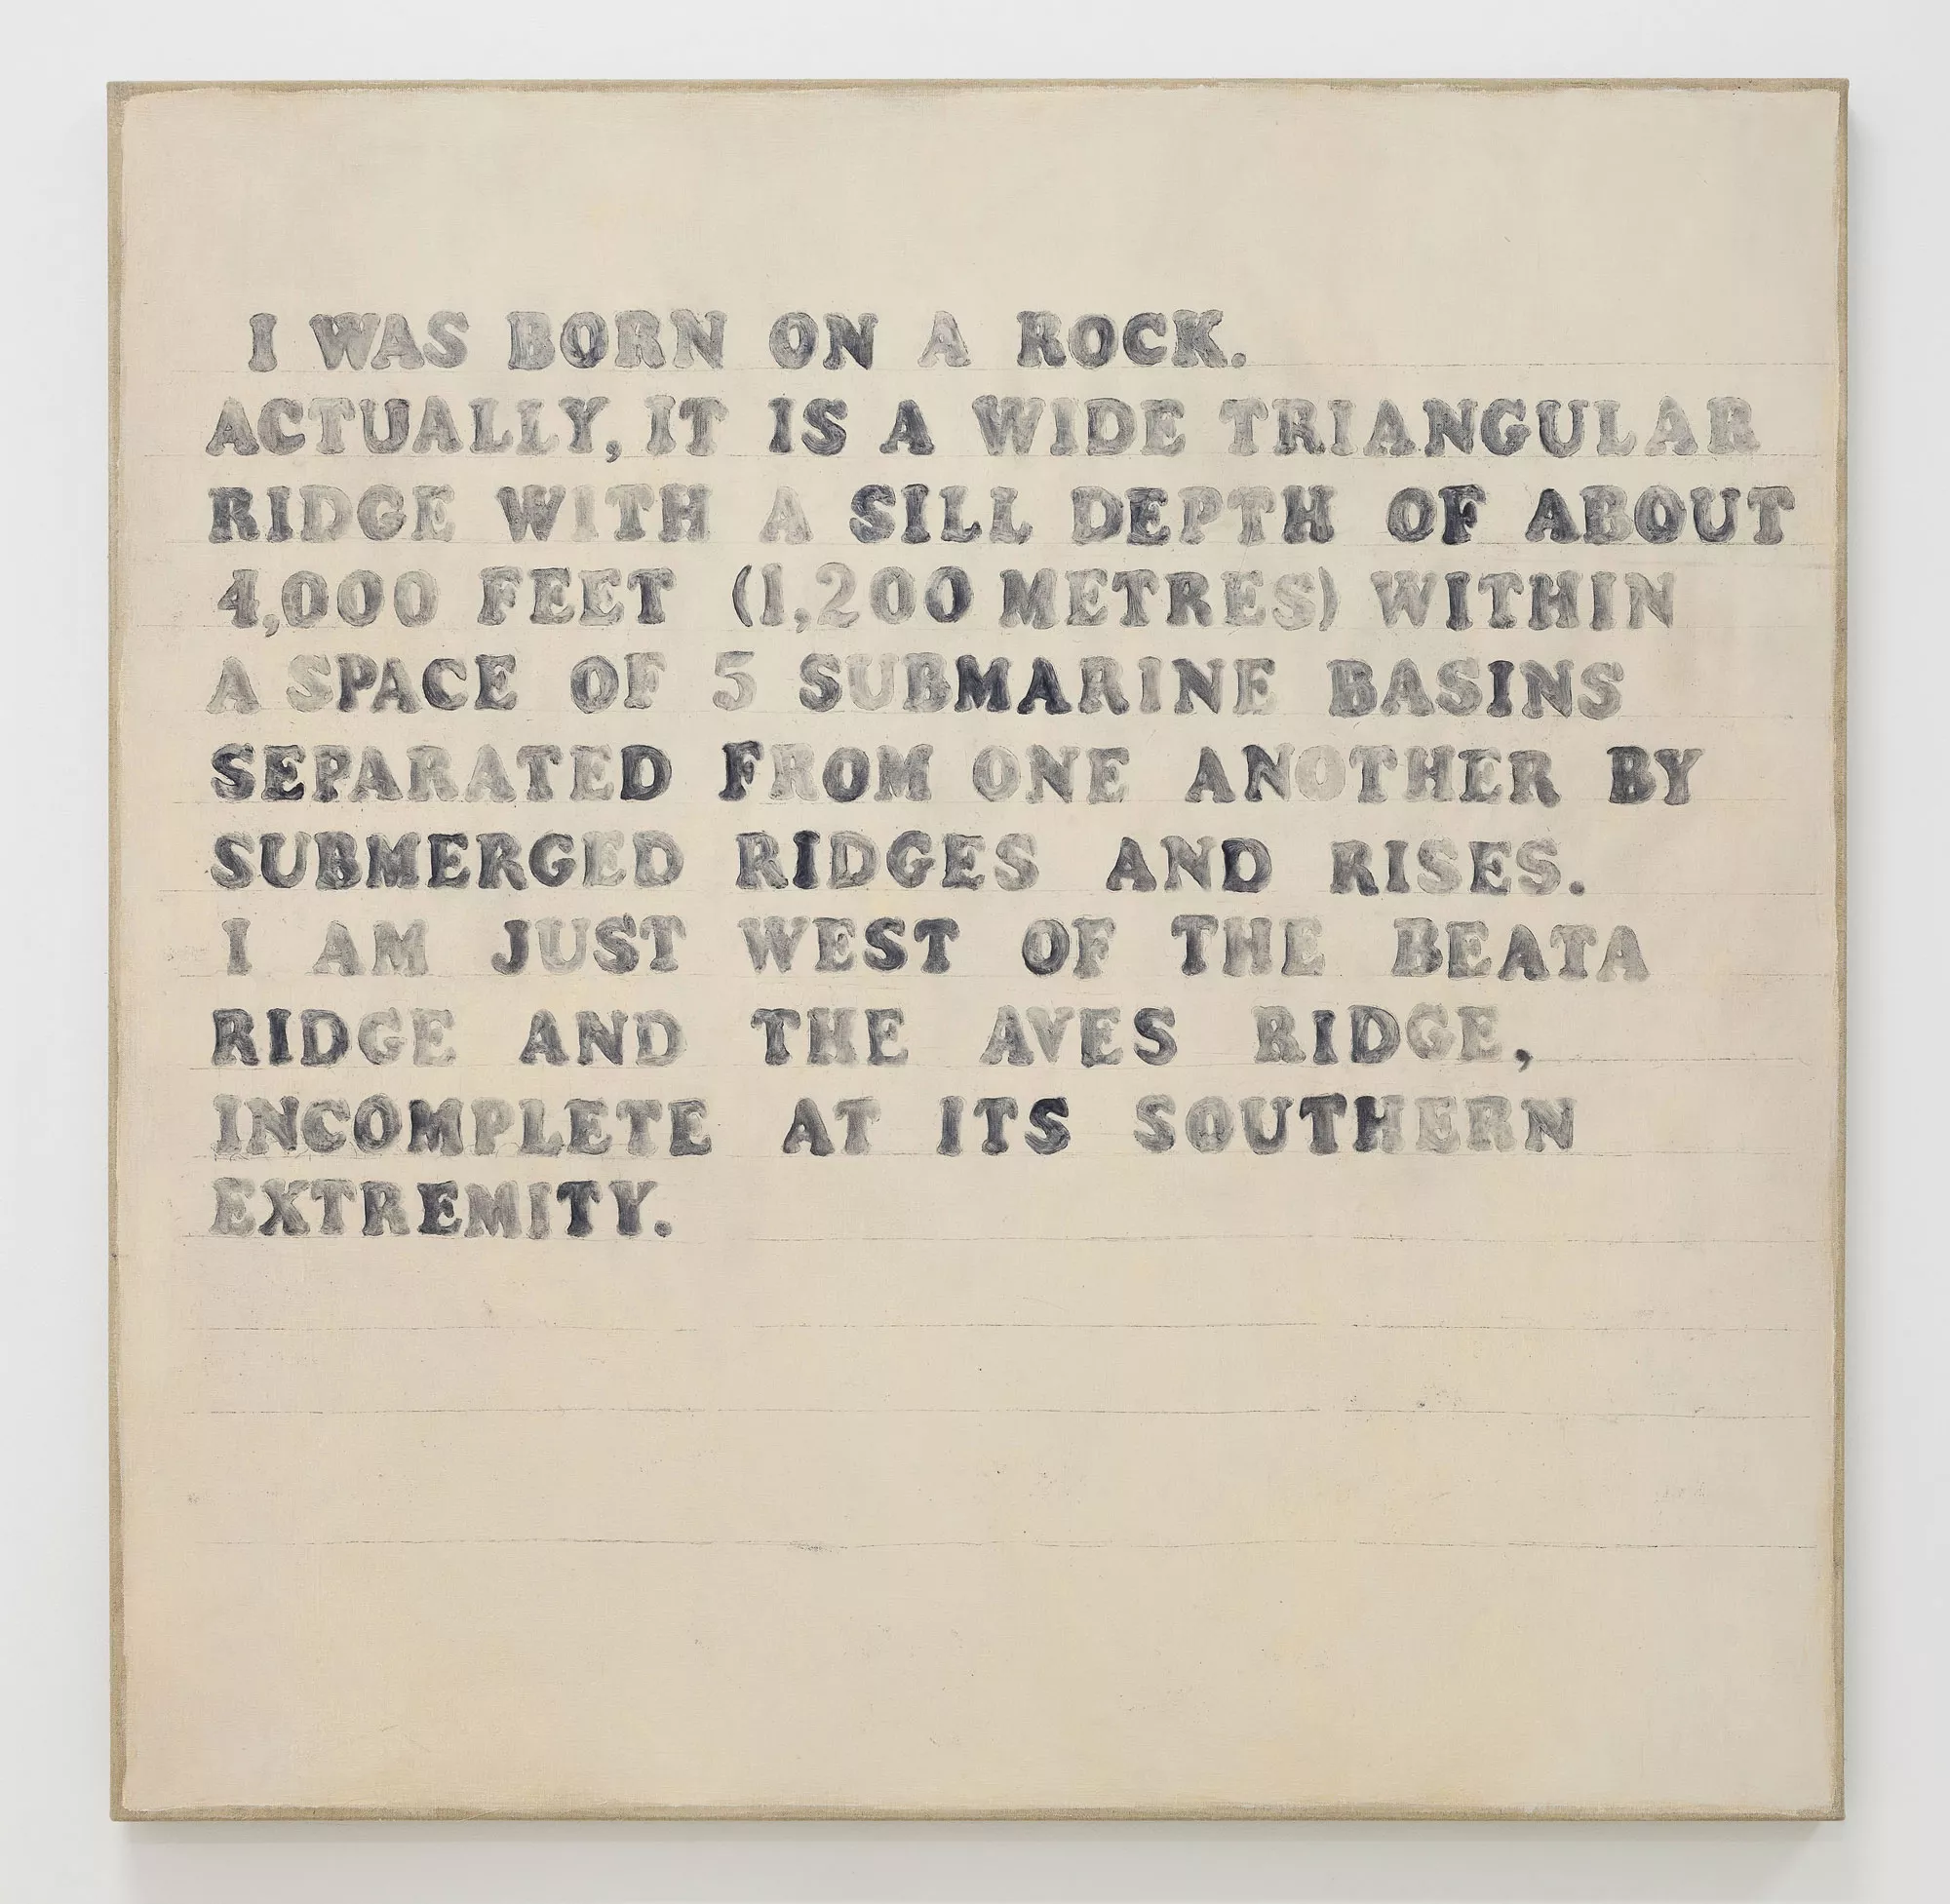 I WAS BORN ON A ROCK.
ACTUALLY, IT IS A WIDE TRIANGULAR
RIDGE WITH A SILL DEPTH OF ABOUT
4,000 FEET (1,200 METRES) WITHIN
A SPACE OF 5 SUBMARINE BASINS
SEPARATED FROM ONE ANOTHER BY
SUBMERGED RIDGES AND RISES.
I AM JUST WEST OF THE BEATA
RIDGE AND THE AVES RIDGE,
INCOMPLETE AT ITS SOUTHERN
EXTREMITY.